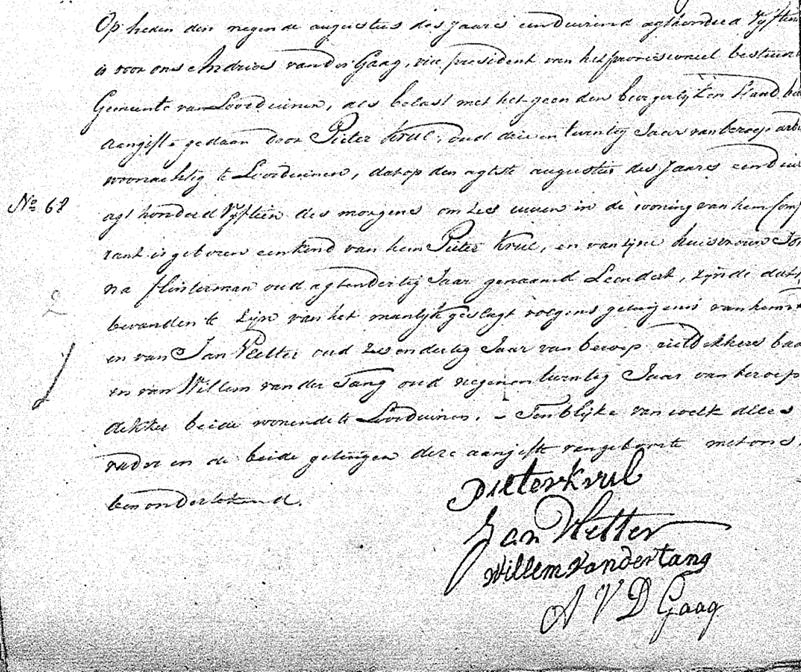 Op heden den negende augustus des Jaares eenduizend agthonderd Vyftien
is voor ons Andries van der Gaag, vice president van het provisioneel bestuur
Gemeente van Loosduinen, als belast met het geen den burgerlyken Stand
aangifte gedaan door Pieter Krul, oud drie en twintig Jaar van beroep
woonachtig te Loosduinen, dat op den agtste augustus des Jaares een
No 68
agt honderd Vyftien des morgens om zes uuren in de wooning van hem
rant is geboren een kend van hem Pieter Krul, en van zyne huisvrouw
na flinterman oud agtendertig Jaar genaamd Leendert, zynde
bevonden te zyn van het manlyk geslagt volgens getuigenis van hem
en van Jan Vletter oud zesendertig Jaar van beroep rietdekkers
en van Willem van der Tang oud negen en twintig Jaar van beroep
dekker beide wonende te Loosduinen. - Ten blyke van welk
vader en de beide getuigen deze aangifte van geboorte met ons
ben onderteekend.
Pieter Krul
Jan Vletter
Willem van der tang
A V D Gaag